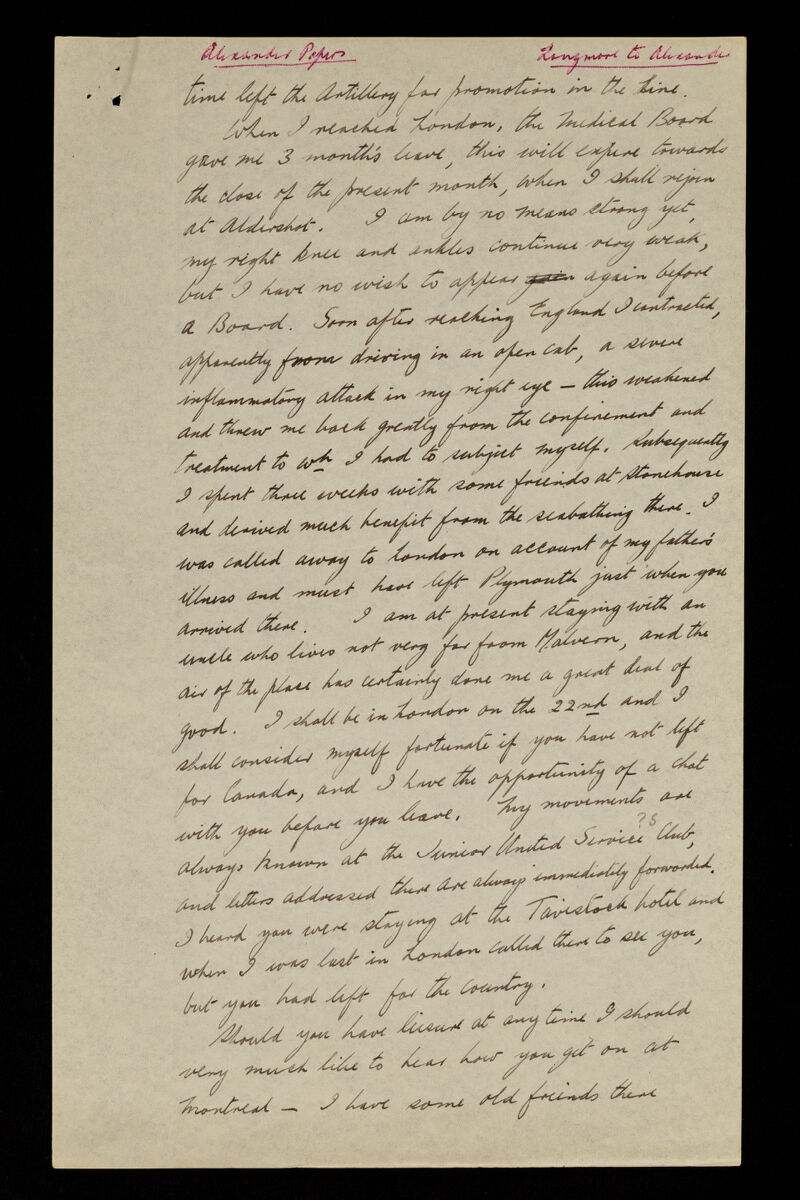 Alexander Papers Longmore to Alexander
time left the Artillery for promotion in the Line.
When I reached London, the Medical Board
gave me 3 month's leave, this will expire towards
the close of the present month, when I shall rejoin
at Aldershot. I am by no means strong yet,
my right knee and ankles continue very weak,
but I have no wish to appear again before
a Board. Soon after reaching England I contracted,
apparently from driving in an open cab, a severe
inflammatory attack in my right eye – this weakened
and threw me back greatly from the confinement and
treatment to wh I had to subject myself. Subsequently
I spent three weeks with some friends at Stonehouse
and derived much benefit from the seabathing there. I
was called away to London on account of my father's
illness and must have left Plymouth just when you
arrived there. I am at present staying with an
uncle who lives not very far from Malvern, and the
air of the place has certainly done me a great deal of
good. I shall be in London on the 22nd and I
shall consider myself fortunate if you have not left
for Canada, and I have the opportunity of a chat
with you before you leave. My movements are
always known at the Junior United Service ?s Club,
and letters addressed there are always immediately forwarded.
I heard you were staying at the Tavistock hotel and
when I was last in London called there to see you,
but you had left for the country.
Should you have leisure at any time I should
very much like to hear how you get on at
Montreal – I have some old friends there